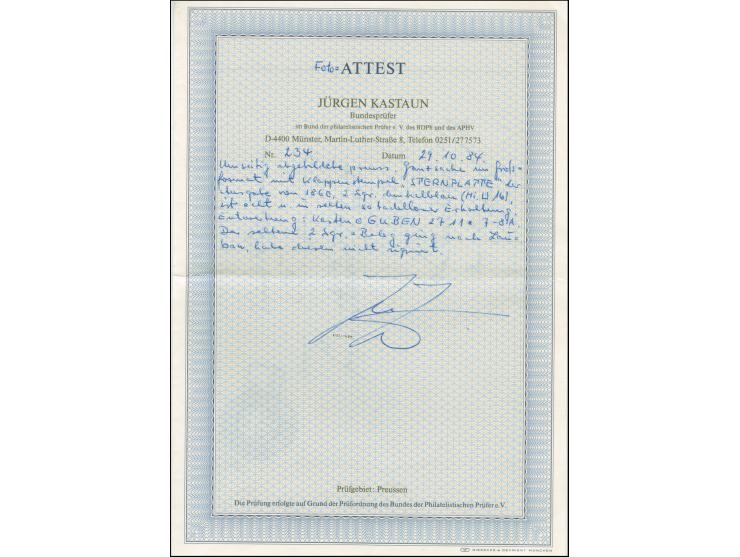 Foto= ATTEST
JÜRGEN KASTAUN
Bundesprüfer
im Bund der philatelistischen Prüfer e. V. des BDPh und des APHV
D-4400 Münster, Martin-Luther-Straße 8, Telefon 0251/277573
Nr. 234 Datum 29.10.84
Umseitig abgebildete preuss. Ganzsache im Groß-
format mit Klappenstempel „STERNPLATTE" der
Ausgabe von 186 , 2 Sgr. dunkelblau (Mi. U ),
ist echt u. in selten so tadelloser Erhaltung.
Entwertung: Kasten GUBEN 27 11 * 7-8
Der seltene 2 Sgr.=Beleg ging nach Lau-
ban, habe diesen nicht signiert.
Prüfgebiet: Preussen
Die Prüfung erfolgte auf Grund der Prüfordnung des Bundes der Philatelistischen Prüfer e.V.
GIESECKE & DEVRIENT MÜNCHEN